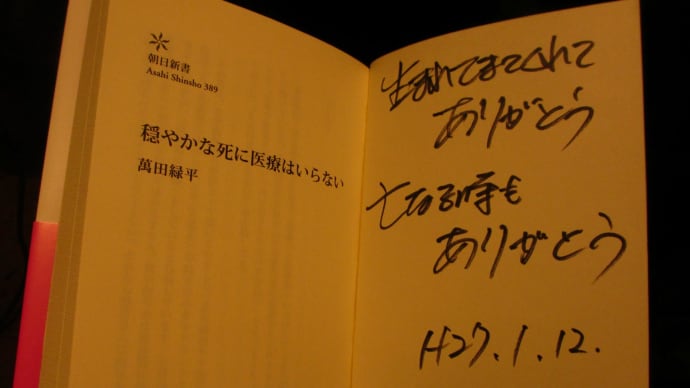 朝日新書
Asahi Shinsho 389
穏やかな死に医療はいらない
萬田緑平
生まれてきてくれて
ありがとう
亡なる時も
ありがとう
H27.1.12.